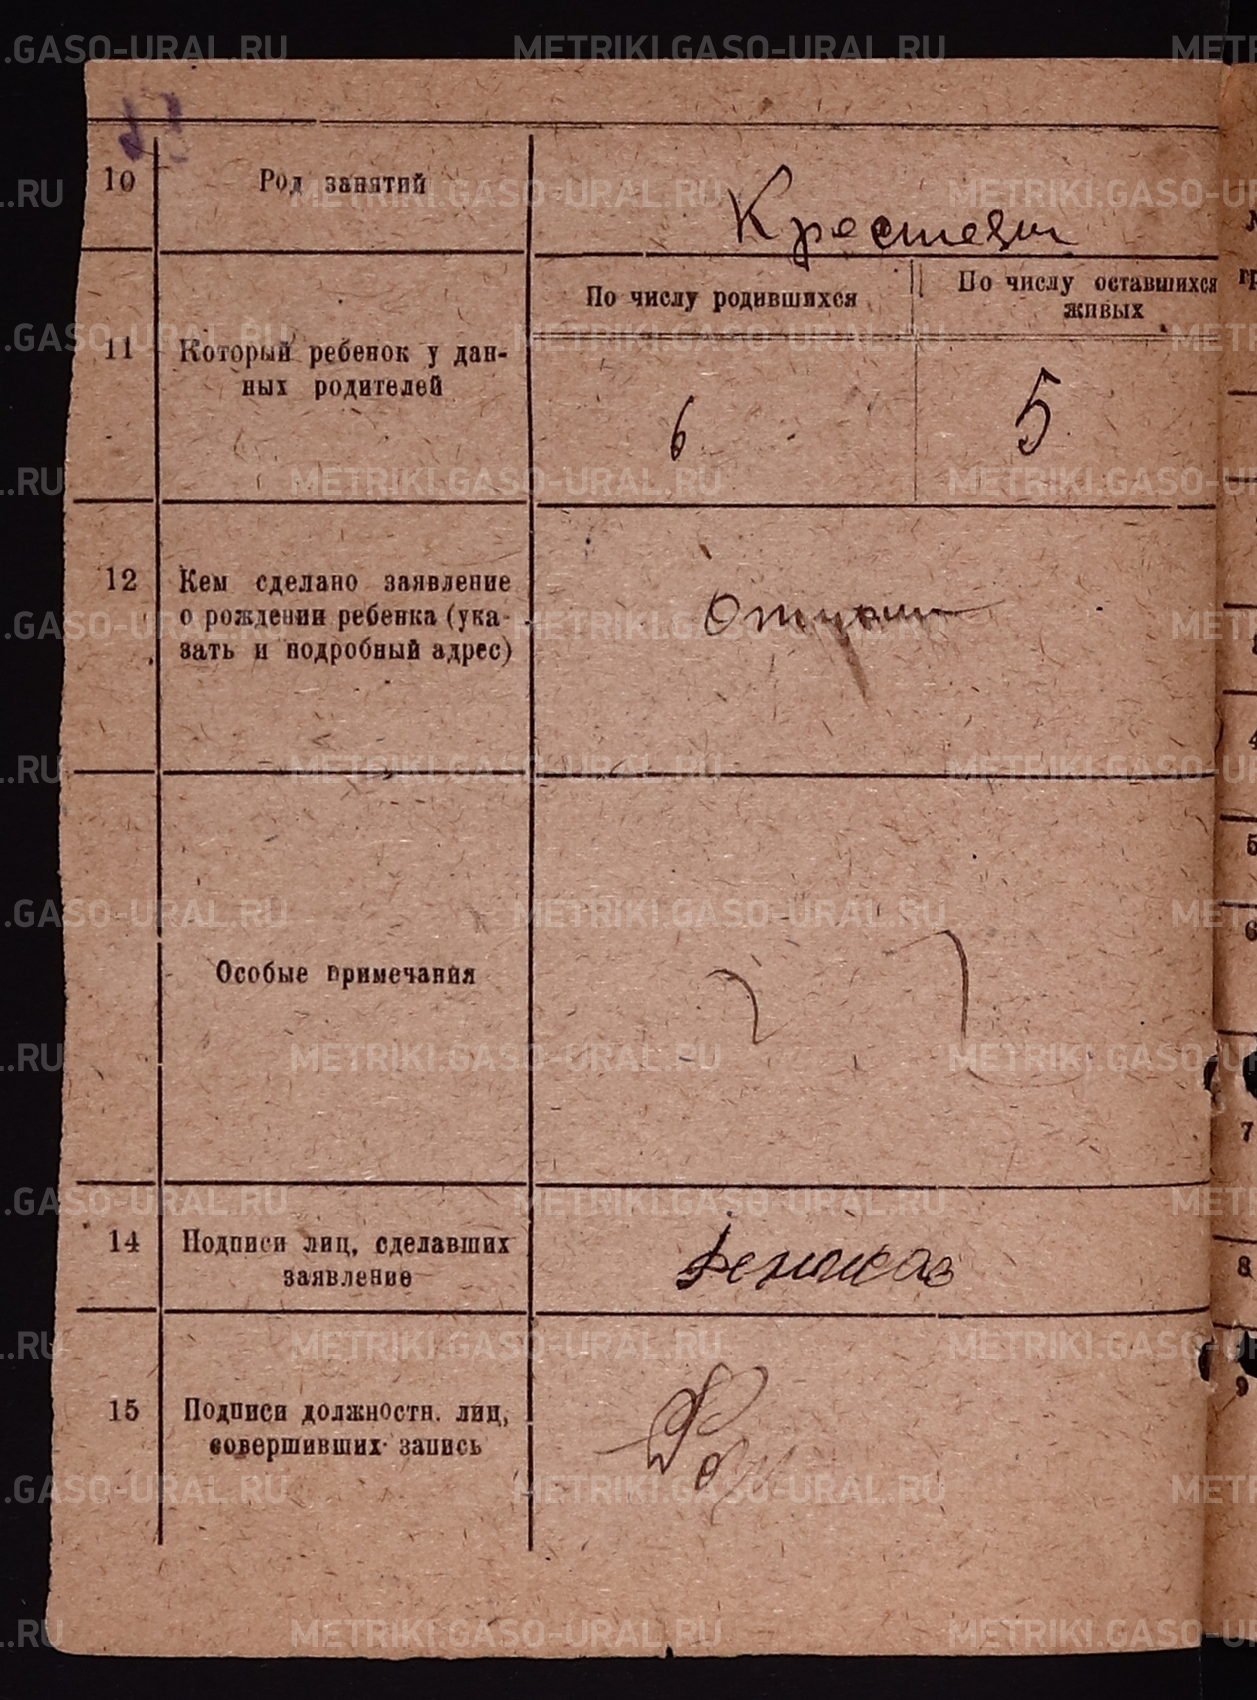 10
Род занятий
11
По числу родившихся
По числу оставшихся
живых
Который ребенок у дан-
ных родителей
6
5
12
Кем сделано заявление
о рождении ребенка (ука-
зать и подробный адрес)
Отцом
Особые примечания
14
Подписи лиц, сделавших
заявление
15
Подписи должностн. лиц,
совершивших запись
METRIKI.GASO-URAL.RU